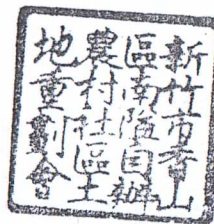 新竹市香山
區南隘自辦
農村社區土
地重劃會